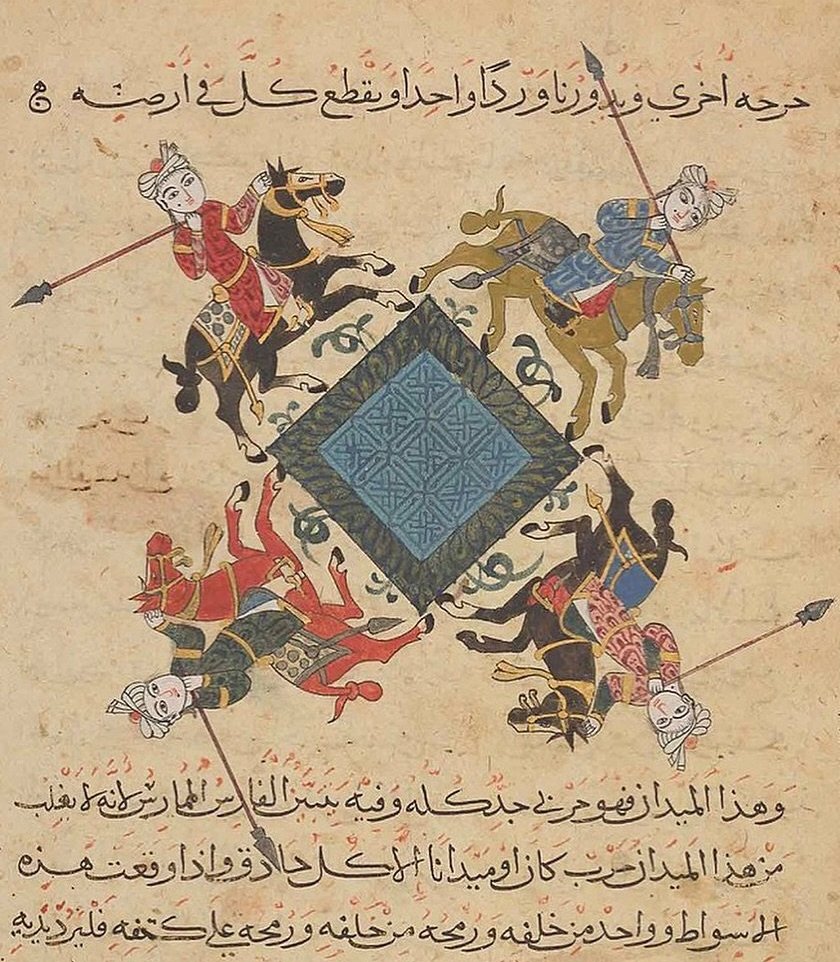 خرجه اخري ويدورنا وردًا واحدا ويقطع كل في ارضه
وهذا الميدان فهو حربي جد كله وفيه يتبين الفارس الممارس لانه لا يغلب
من هذا الميدان حرب كان او ميدانا الا كل حاذق واذا وقعت هذه
الاسواط وواحد من خلفه ورمحه من خلفه ورمحه علي كتفه فليرد يديه